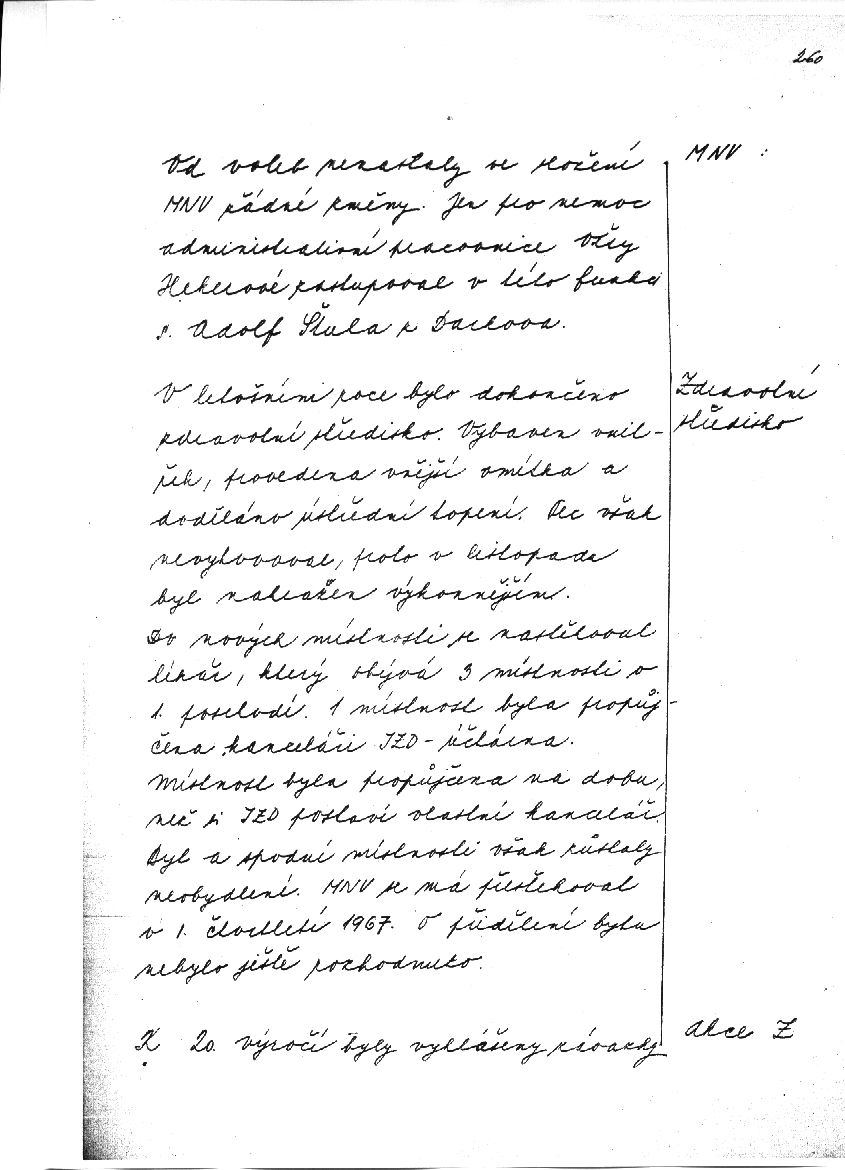 260
MNV :
Od voleb nenastaly ve složení
MNV žádné změny. Jen pro nemoc
administrativní pracovnice Věry
Hekerové zastupoval v této funkci
s. Adolf Štula z Dackova.
Zdravotní
středisko
V letošním roce bylo dokončeno
zdravotní středisko. Vybaven vnit-
řek, provedena vnější omítka a
doděláno ústřední topení. Pec však
nevyhovoval, proto v listopadu
byl nahražen výkonnějším.
Do nových místností se nastěhoval
lékař, který obývá 3 místnosti v
1. poschodí. 1 místnost byla propůj-
čena kanceláři JZD - účtárna.
Místnost byla propůjčena na dobu,
než si JZD postaví vlastní kancelář.
Byt a spodní místnosti však zůstaly
neobydlení. MNV se má přestěhovat
v 1. čtvrtletí 1967. O přidělení bytu
nebylo ještě rozhodnuto.
Akce Z
K 20. výročí byly vyhlášeny závazky